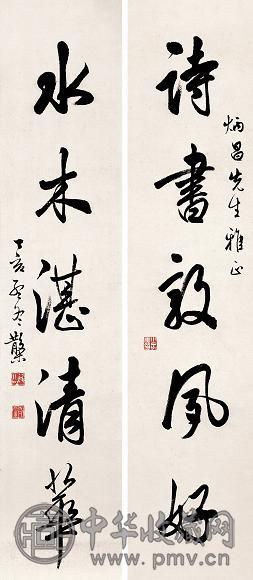 詩書敦夙好
炳昌先生雅正
水木湛清華
丁亥
中华收藏网
www.pmv.cn